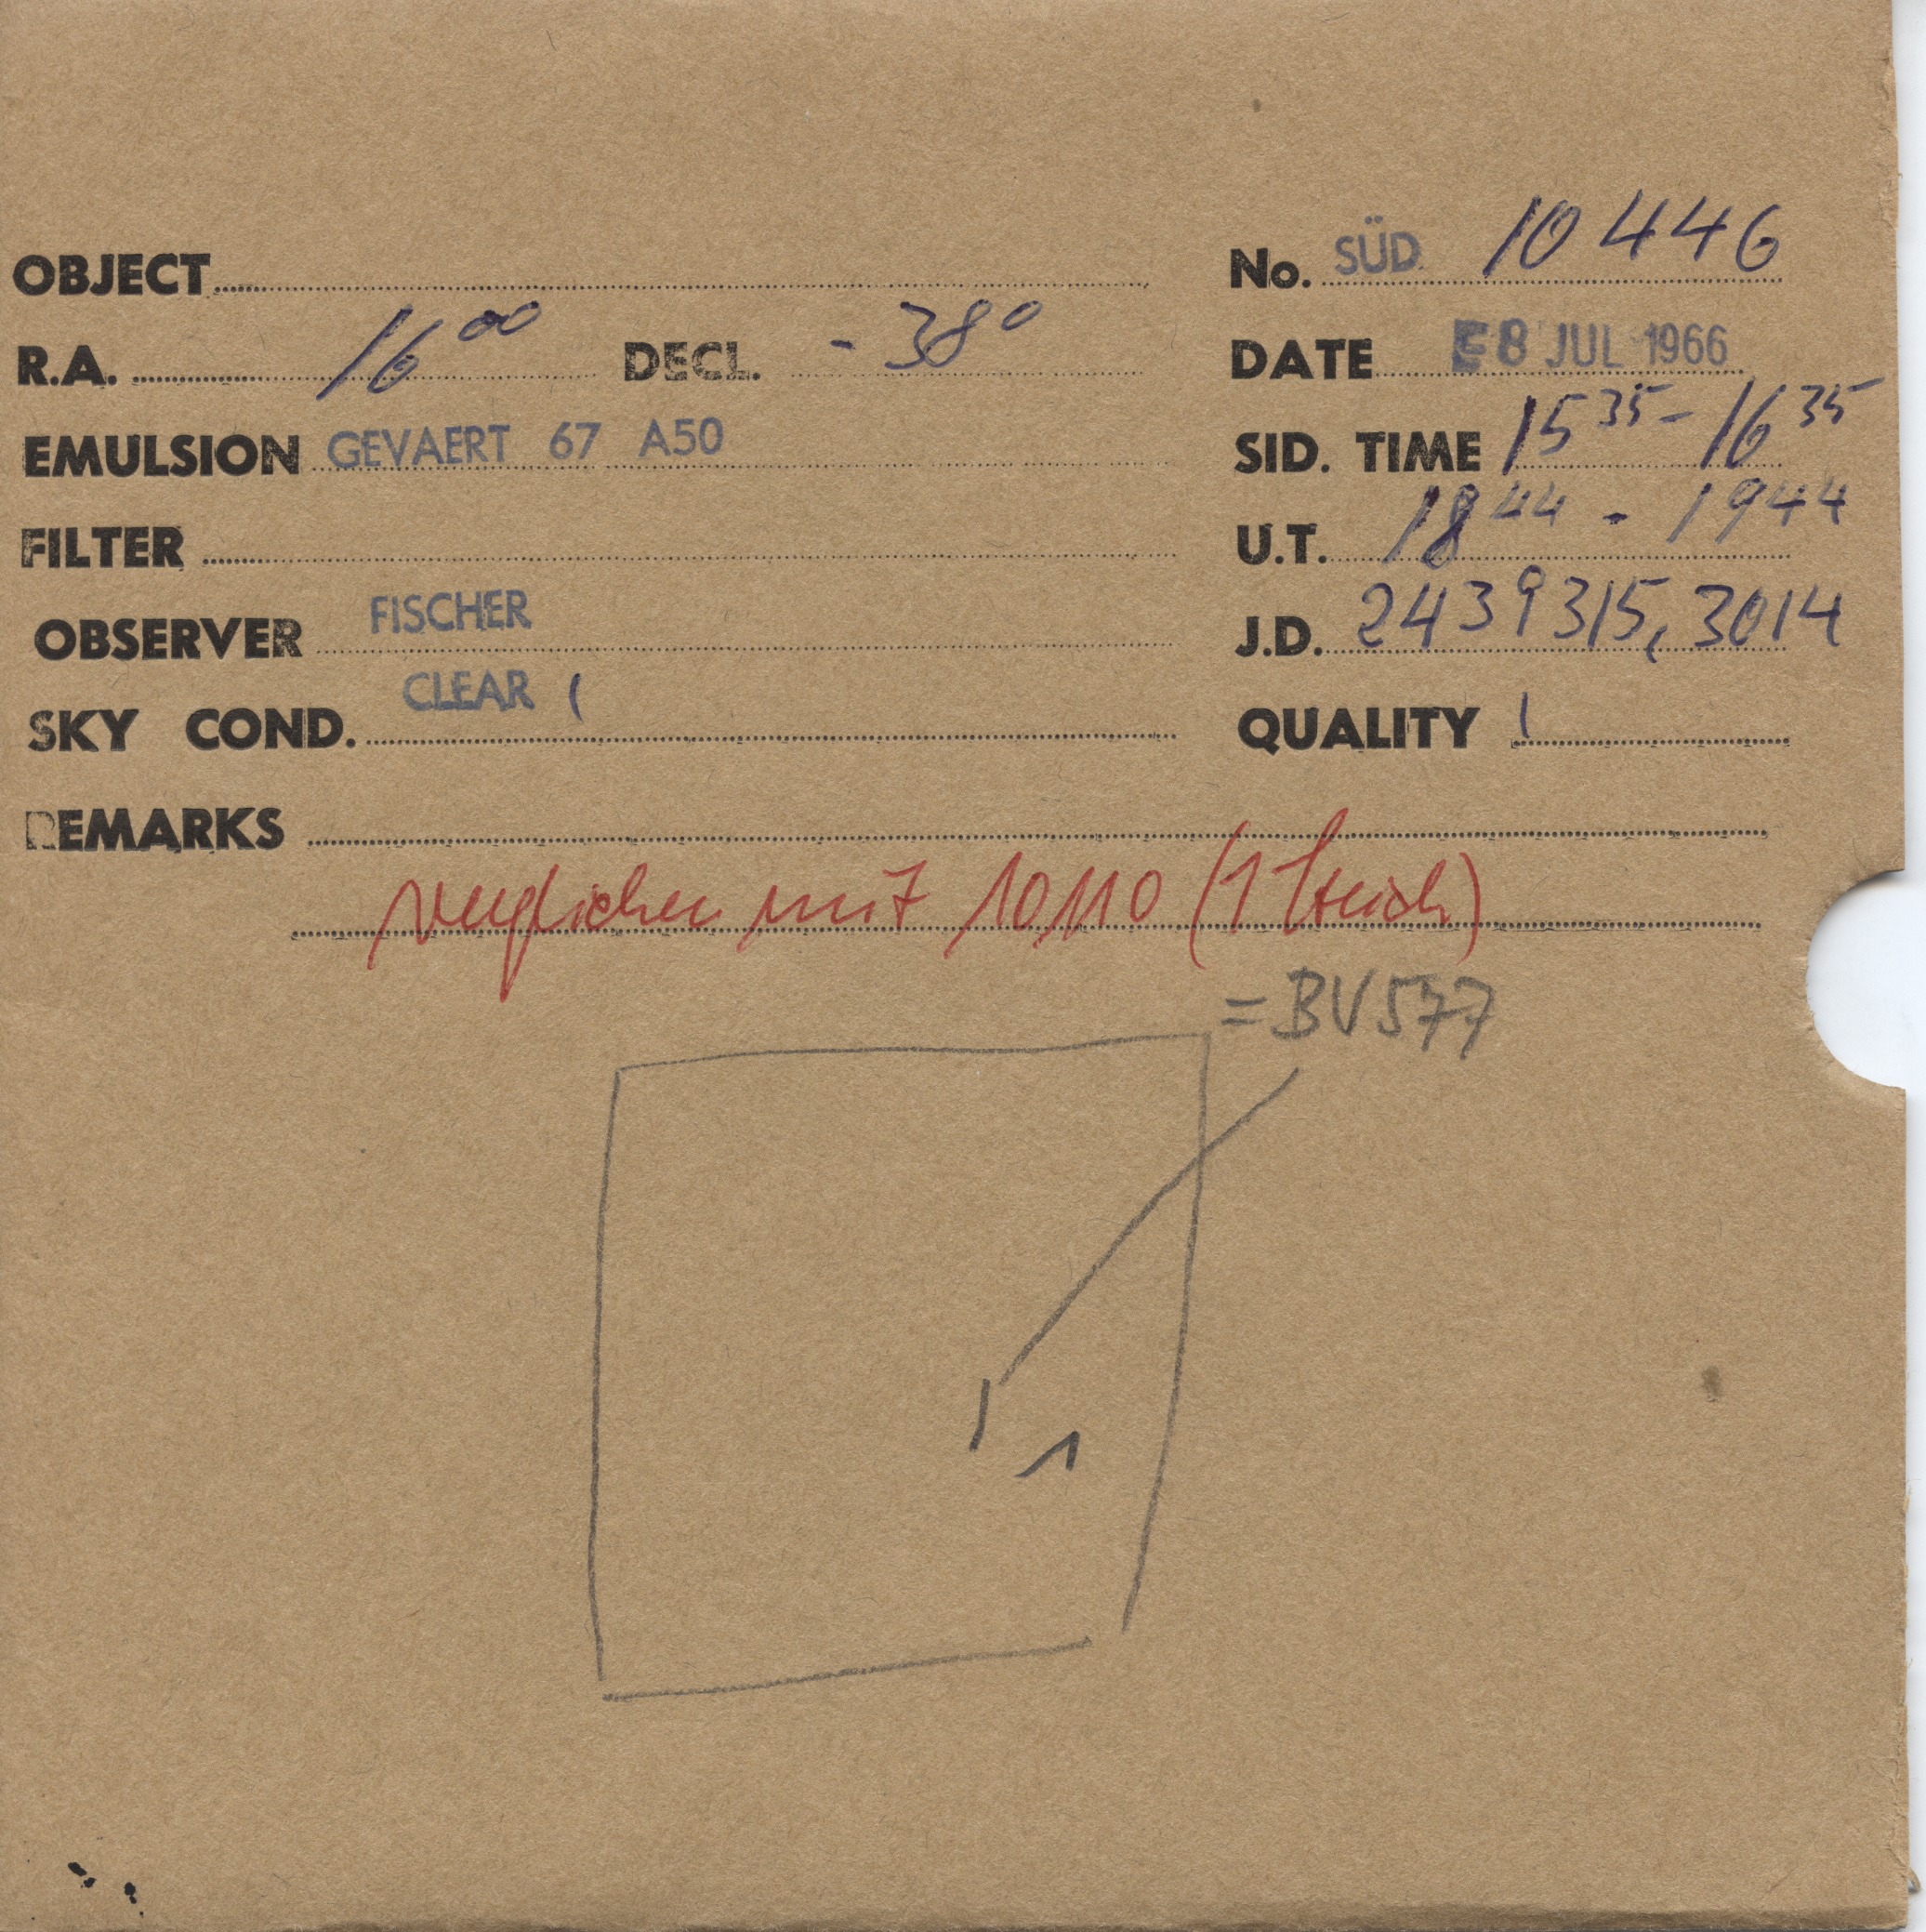 OBJECT
No. SÜD 10446
R.A. 16 00 DECL. - 38°
DATE 8 JUL 1966
EMULSION GEVAERT 67 A50
SID. TIME 15 35 - 16 35
FILTER
U.T. 18 44 - 19 44
OBSERVER FISCHER
J.D. 2439315,3014
SKY COND. CLEAR 1
QUALITY 1
REMARKS
verglichen mit 10110 (1 Strich)
= BV577
1